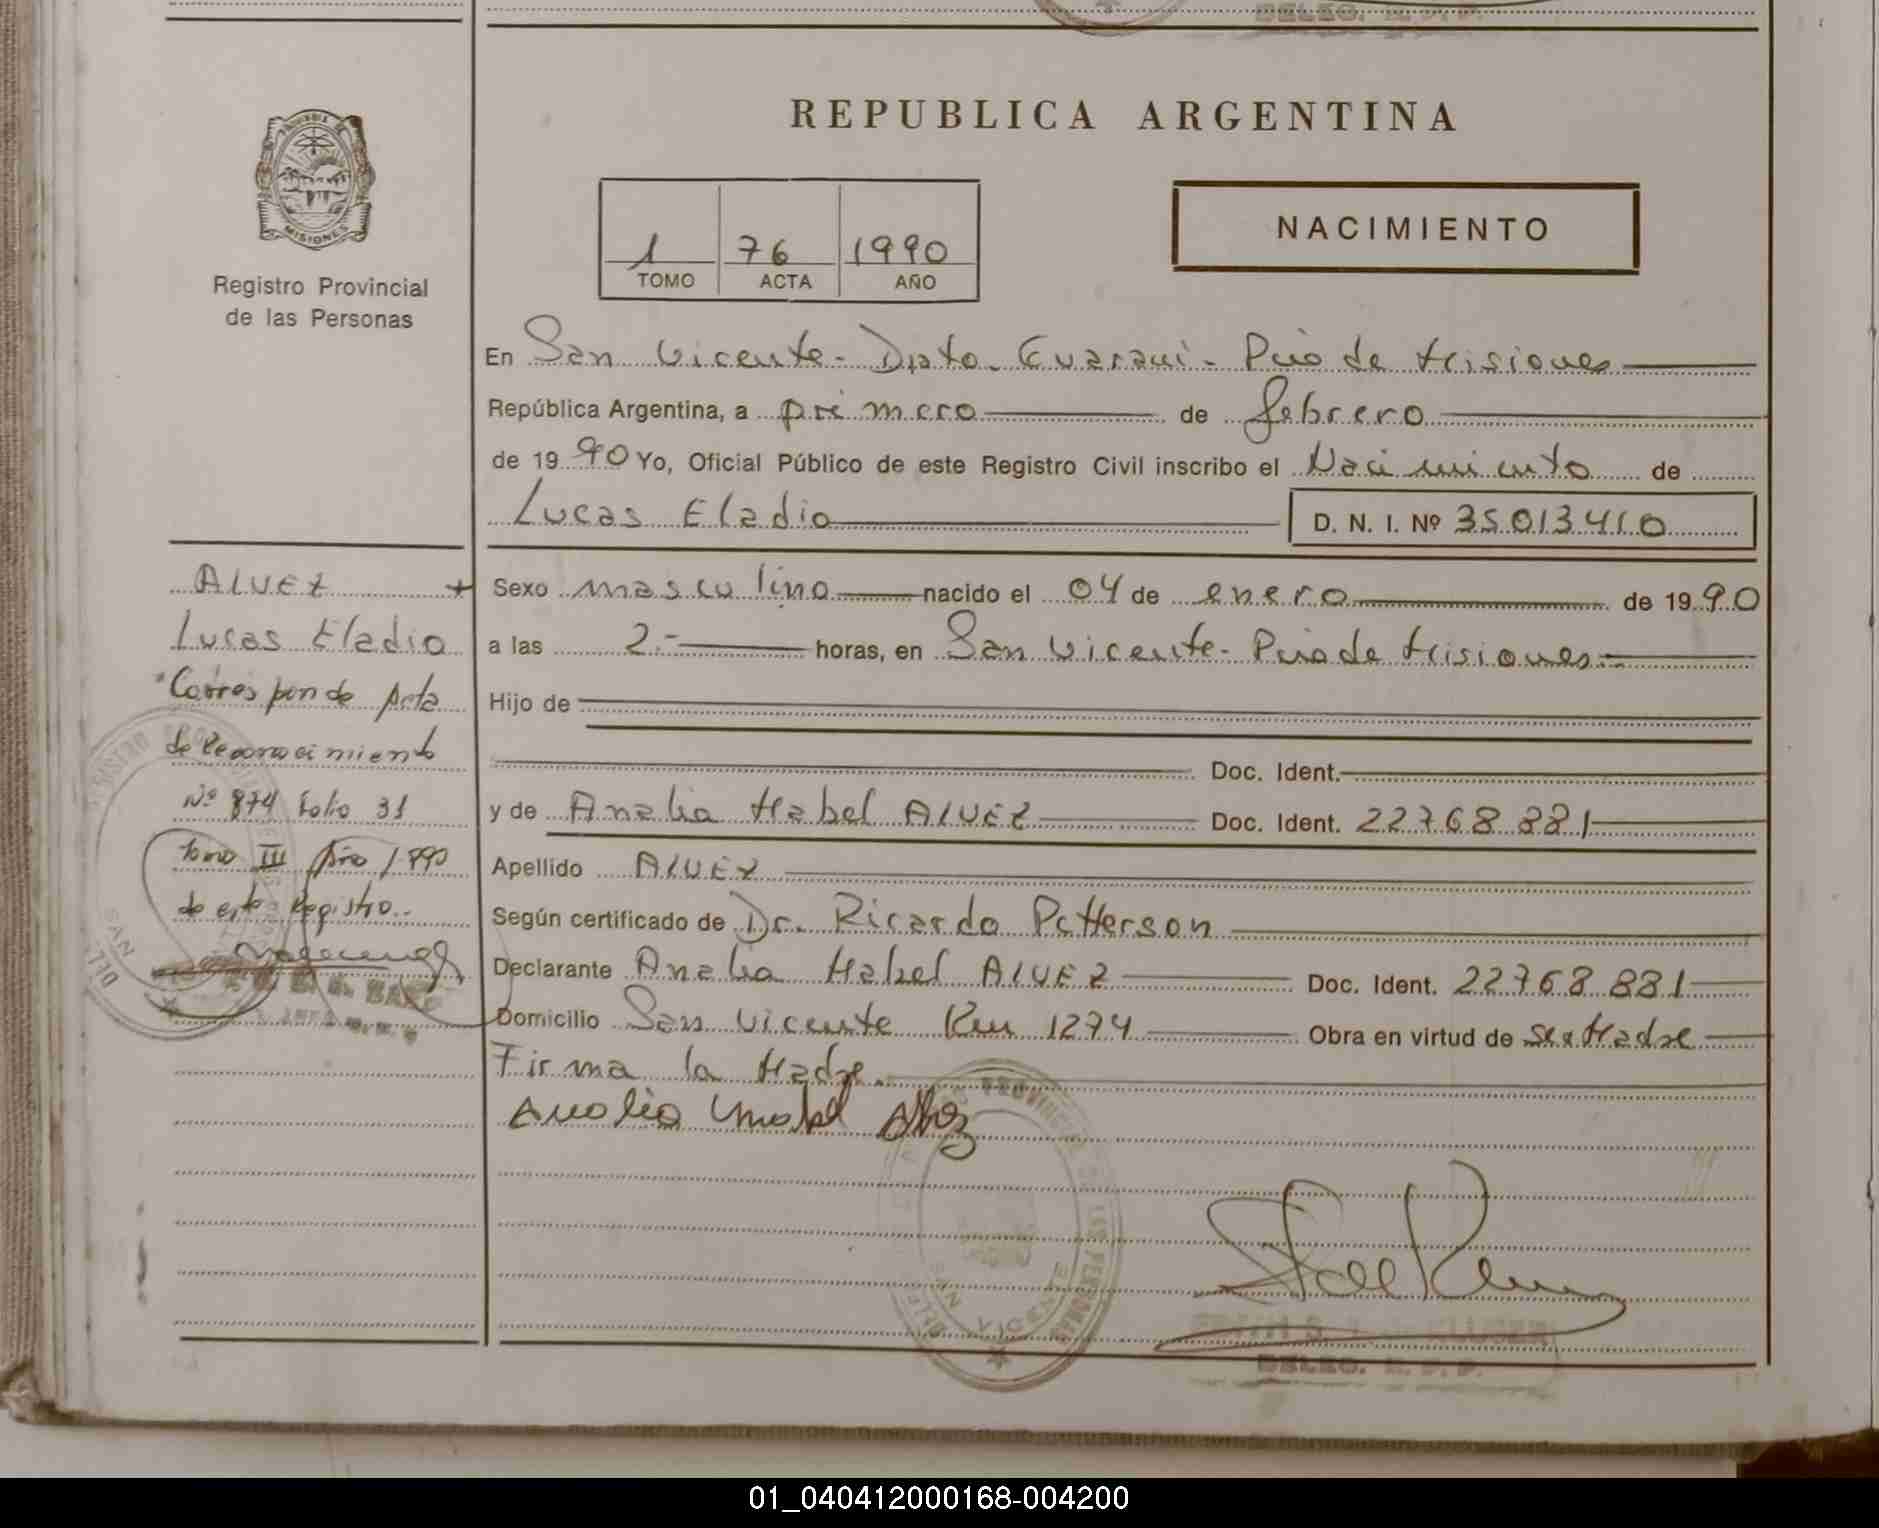 DELEG. R. P. P.
REPUBLICA ARGENTINA
PROVINCIA DE
MISIONES
Registro Provincial
de las Personas
1 76 1990
TOMO ACTA AÑO
NACIMIENTO
En San Vicente - Dpto. Guarani - Pcia de Misiones
República Argentina, a primero de febrero
de 1990 Yo, Oficial Público de este Registro Civil inscribo el Nacimiento de
Lucas Eladio D. N. I. Nº 35.013.410
Sexo masculino nacido el 04 de enero de 1990
a las 2.- horas, en San Vicente - Pcia de Misiones.-
Hijo de
Doc. Ident.
y de Analia Mabel ALVEZ Doc. Ident. 22.768.881
Apellido ALVEZ
Según certificado de Dr. Ricardo Patterson
Declarante Analia Mabel ALVEZ Doc. Ident. 22.768.881
Domicilio San Vicente Km 1274 Obra en virtud de ser Madre
Firma la Madre.
Analia Mabel Alvez
ALVEZ
Lucas Eladio
Corresponde Acta
de Reconocimiento
Nº 874 Folio 31
Tomo III Año 1990
de este Registro.-
SAN
PROVINCIAL DE LAS PERSONAS
SAN VICENTE
KLUGER
DELEG. R. P. P.
01_040412000168-004200